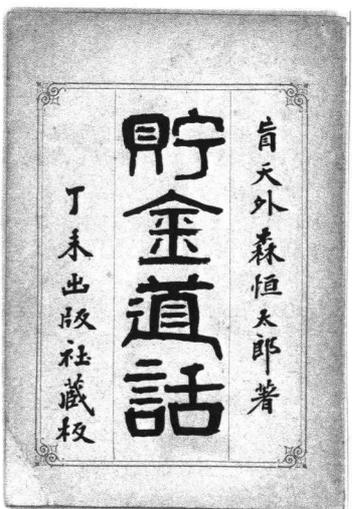 盲天外森恒太郎著
貯金道話
丁未出版社藏板